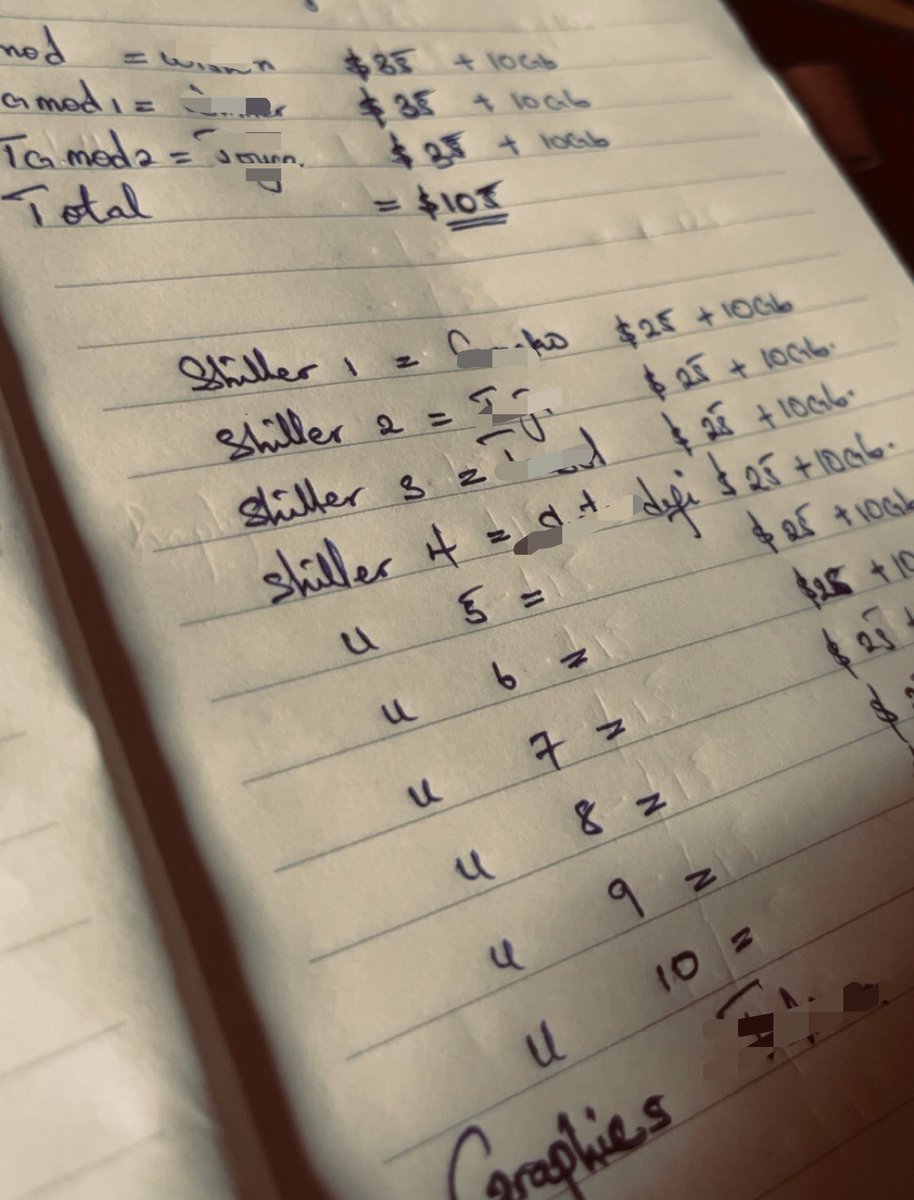 mod = $35 + 10Gb
G mod 1 = $35 + 10Gb
TG mod 2 = $35 + 10Gb
Total = $105
Shiller 1 = $25 + 10Gb
Shiller 2 = $25 + 10Gb.
Shiller 3 = $25 + 10Gb.
Shiller 4 = defi $25 + 10Gb.
u 5 = $25 + 10Gb
u 6 = $25 + 10
u 7 = $25 +
u 8 = $
u 9 =
u 10 =
Graphics